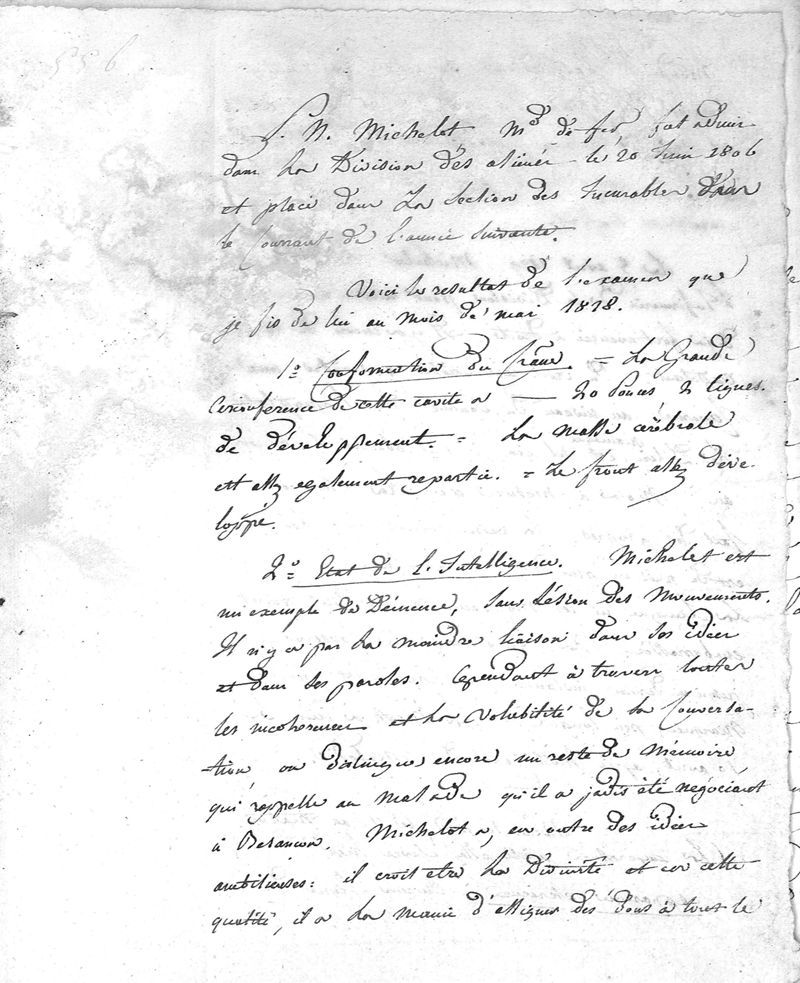 556
J. N. Michelot Md de fer, fut admis
dans la Division des aliénés le 20 Juin 1806
et placé dans La Section des Incurables dans
le Courrant de l'année suivante.
Voici le resultat de l'examen que
je fis de lui au mois de mai 1818.
1º Conformation du Crâne. = La Grande
Circonference de cette cavité a — 20 Pouces 2 lignes.
de développement. = La masse cérébrale
est assez egalement repartie. = Le front assez déve-
loppé.
2º = Etat de L'Intelligence. Michelot est
un exemple de Démence, sans Lésion des Mouvements.
Il n'y a pas la moindre liaison dans ses idées
et dans ses paroles. Cependant à travers toutes
les incoherences et la volubilité de sa Conversa-
-tion, on distingue encore un reste de Mémoire
qui rappelle au malade qu'il a jadis été négociant
à Besancon. Michelot a, en outre des idées
ambitieuses: il croit etre la Divinité et en cette
qualité, il a la manie d'assigner des Dons à tout le